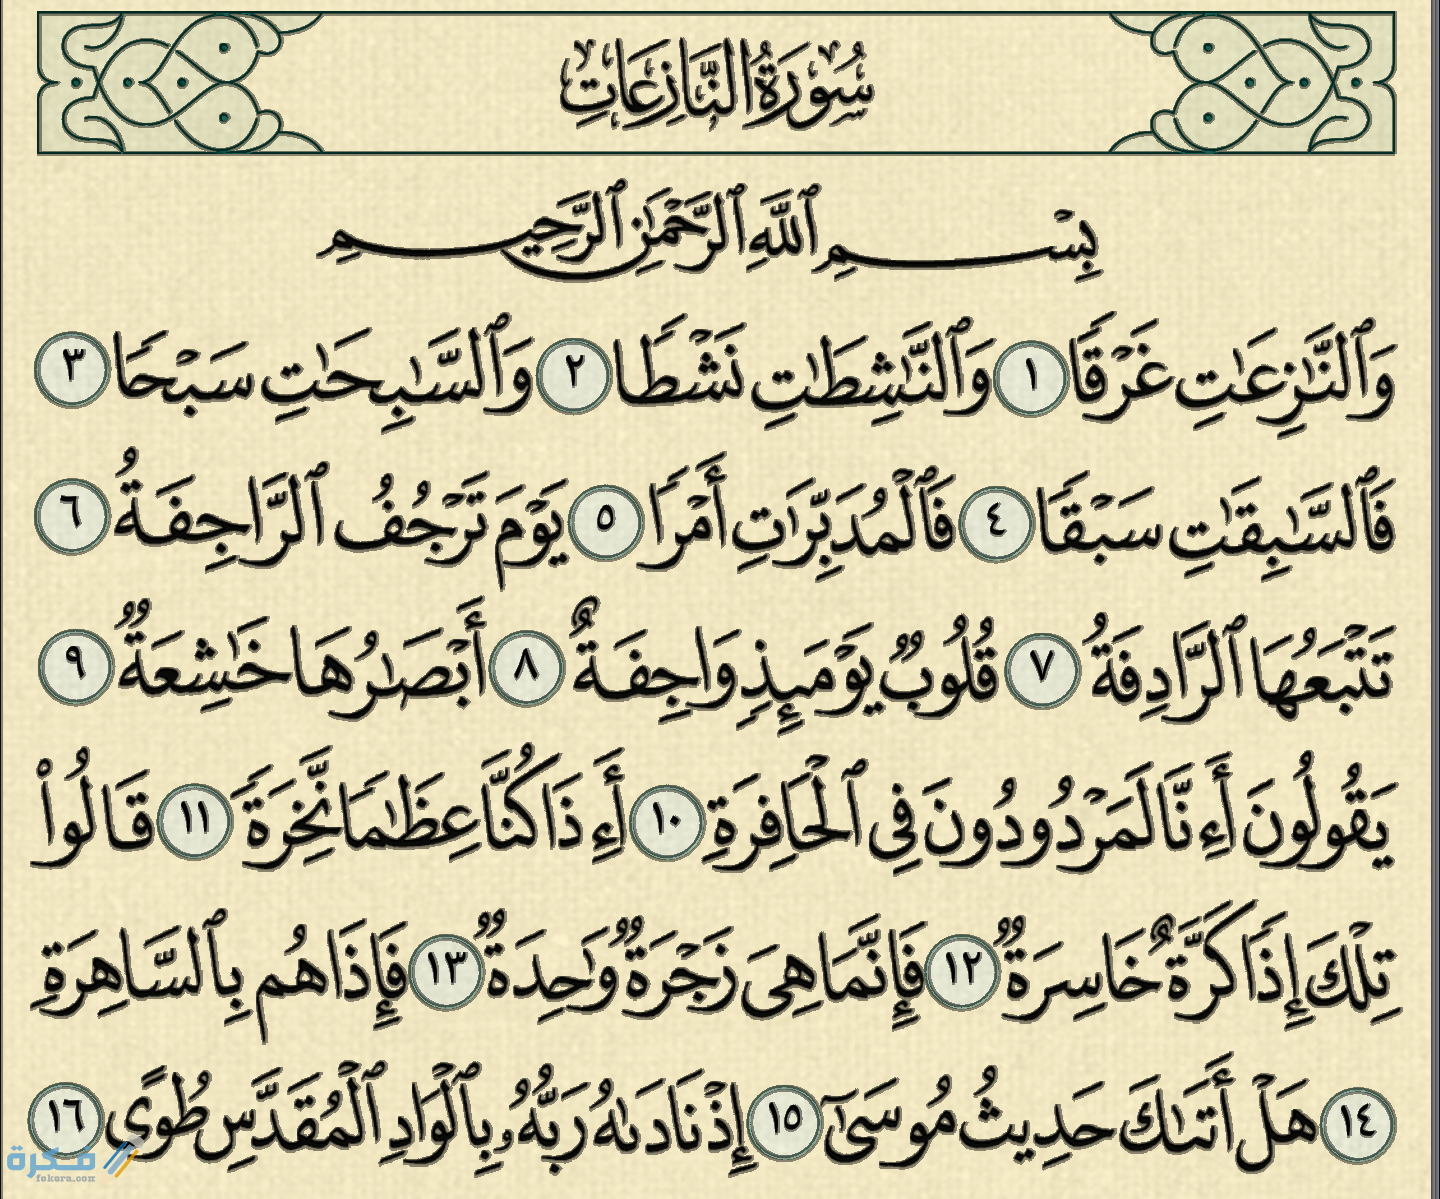 سُورَةُ النَّازِعَاتِ
بِسْمِ ٱللَّهِ ٱلرَّحْمَٰنِ ٱلرَّحِيمِ
وَٱلنَّٰزِعَٰتِ غَرْقًا ١ وَٱلنَّٰشِطَٰتِ نَشْطًا ٢ وَٱلسَّٰبِحَٰتِ سَبْحًا ٣
فَٱلسَّٰبِقَٰتِ سَبْقًا ٤ فَٱلْمُدَبِّرَٰتِ أَمْرًا ٥ يَوْمَ تَرْجُفُ ٱلرَّاجِفَةُ ٦
تَتْبَعُهَا ٱلرَّادِفَةُ ٧ قُلُوبٌ يَوْمَئِذٍ وَاجِفَةٌ ٨ أَبْصَٰرُهَا خَٰشِعَةٌ ٩
يَقُولُونَ أَءِنَّا لَمَرْدُودُونَ فِى ٱلْحَافِرَةِ ١٠ أَءِذَا كُنَّا عِظَٰمًا نَّخِرَةً ١١ قَالُوا۟
تِلْكَ إِذًا كَرَّةٌ خَاسِرَةٌ ١٢ فَإِنَّمَا هِىَ زَجْرَةٌ وَٰحِدَةٌ ١٣ فَإِذَا هُم بِٱلسَّاهِرَةِ
١٤ هَلْ أَتَىٰكَ حَدِيثُ مُوسَىٰٓ ١٥ إِذْ نَادَىٰهُ رَبُّهُۥ بِٱلْوَادِ ٱلْمُقَدَّسِ طُوًى ١٦
فكرة
fekera.com